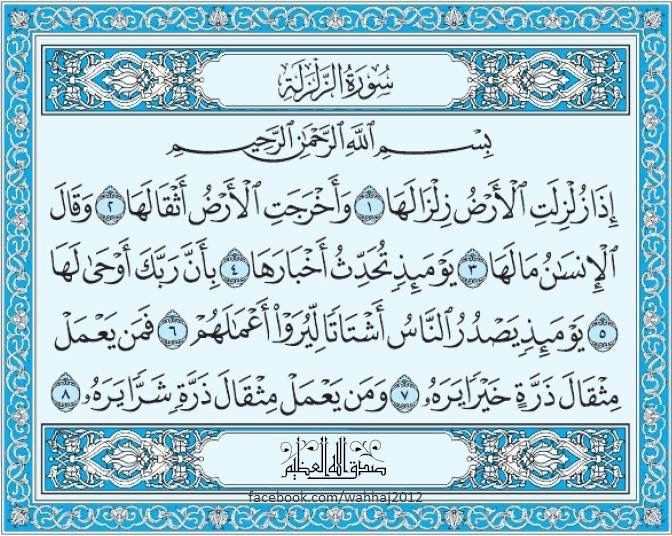 سُورَةُ الزَّلْزَلَةِ
بِسْمِ ٱللَّهِ ٱلرَّحْمَٰنِ ٱلرَّحِيمِ
إِذَا زُلْزِلَتِ ٱلْأَرْضُ زِلْزَالَهَا ١ وَأَخْرَجَتِ ٱلْأَرْضُ أَثْقَالَهَا ٢ وَقَالَ
ٱلْإِنسَٰنُ مَا لَهَا ٣ يَوْمَئِذٍ تُحَدِّثُ أَخْبَارَهَا ٤ بِأَنَّ رَبَّكَ أَوْحَىٰ لَهَا
٥ يَوْمَئِذٍ يَصْدُرُ ٱلنَّاسُ أَشْتَاتًا لِّيُرَوْا۟ أَعْمَٰلَهُمْ ٦ فَمَن يَعْمَلْ
مِثْقَالَ ذَرَّةٍ خَيْرًا يَرَهُۥ ٧ وَمَن يَعْمَلْ مِثْقَالَ ذَرَّةٍ شَرًّا يَرَهُۥ ٨
صدق الله العظيم
facebook.com/wahhaj2012